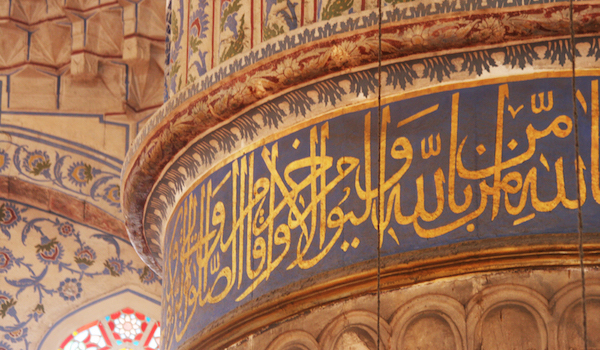 الله من امن بالله واليوم الاخر واقام الصلوة